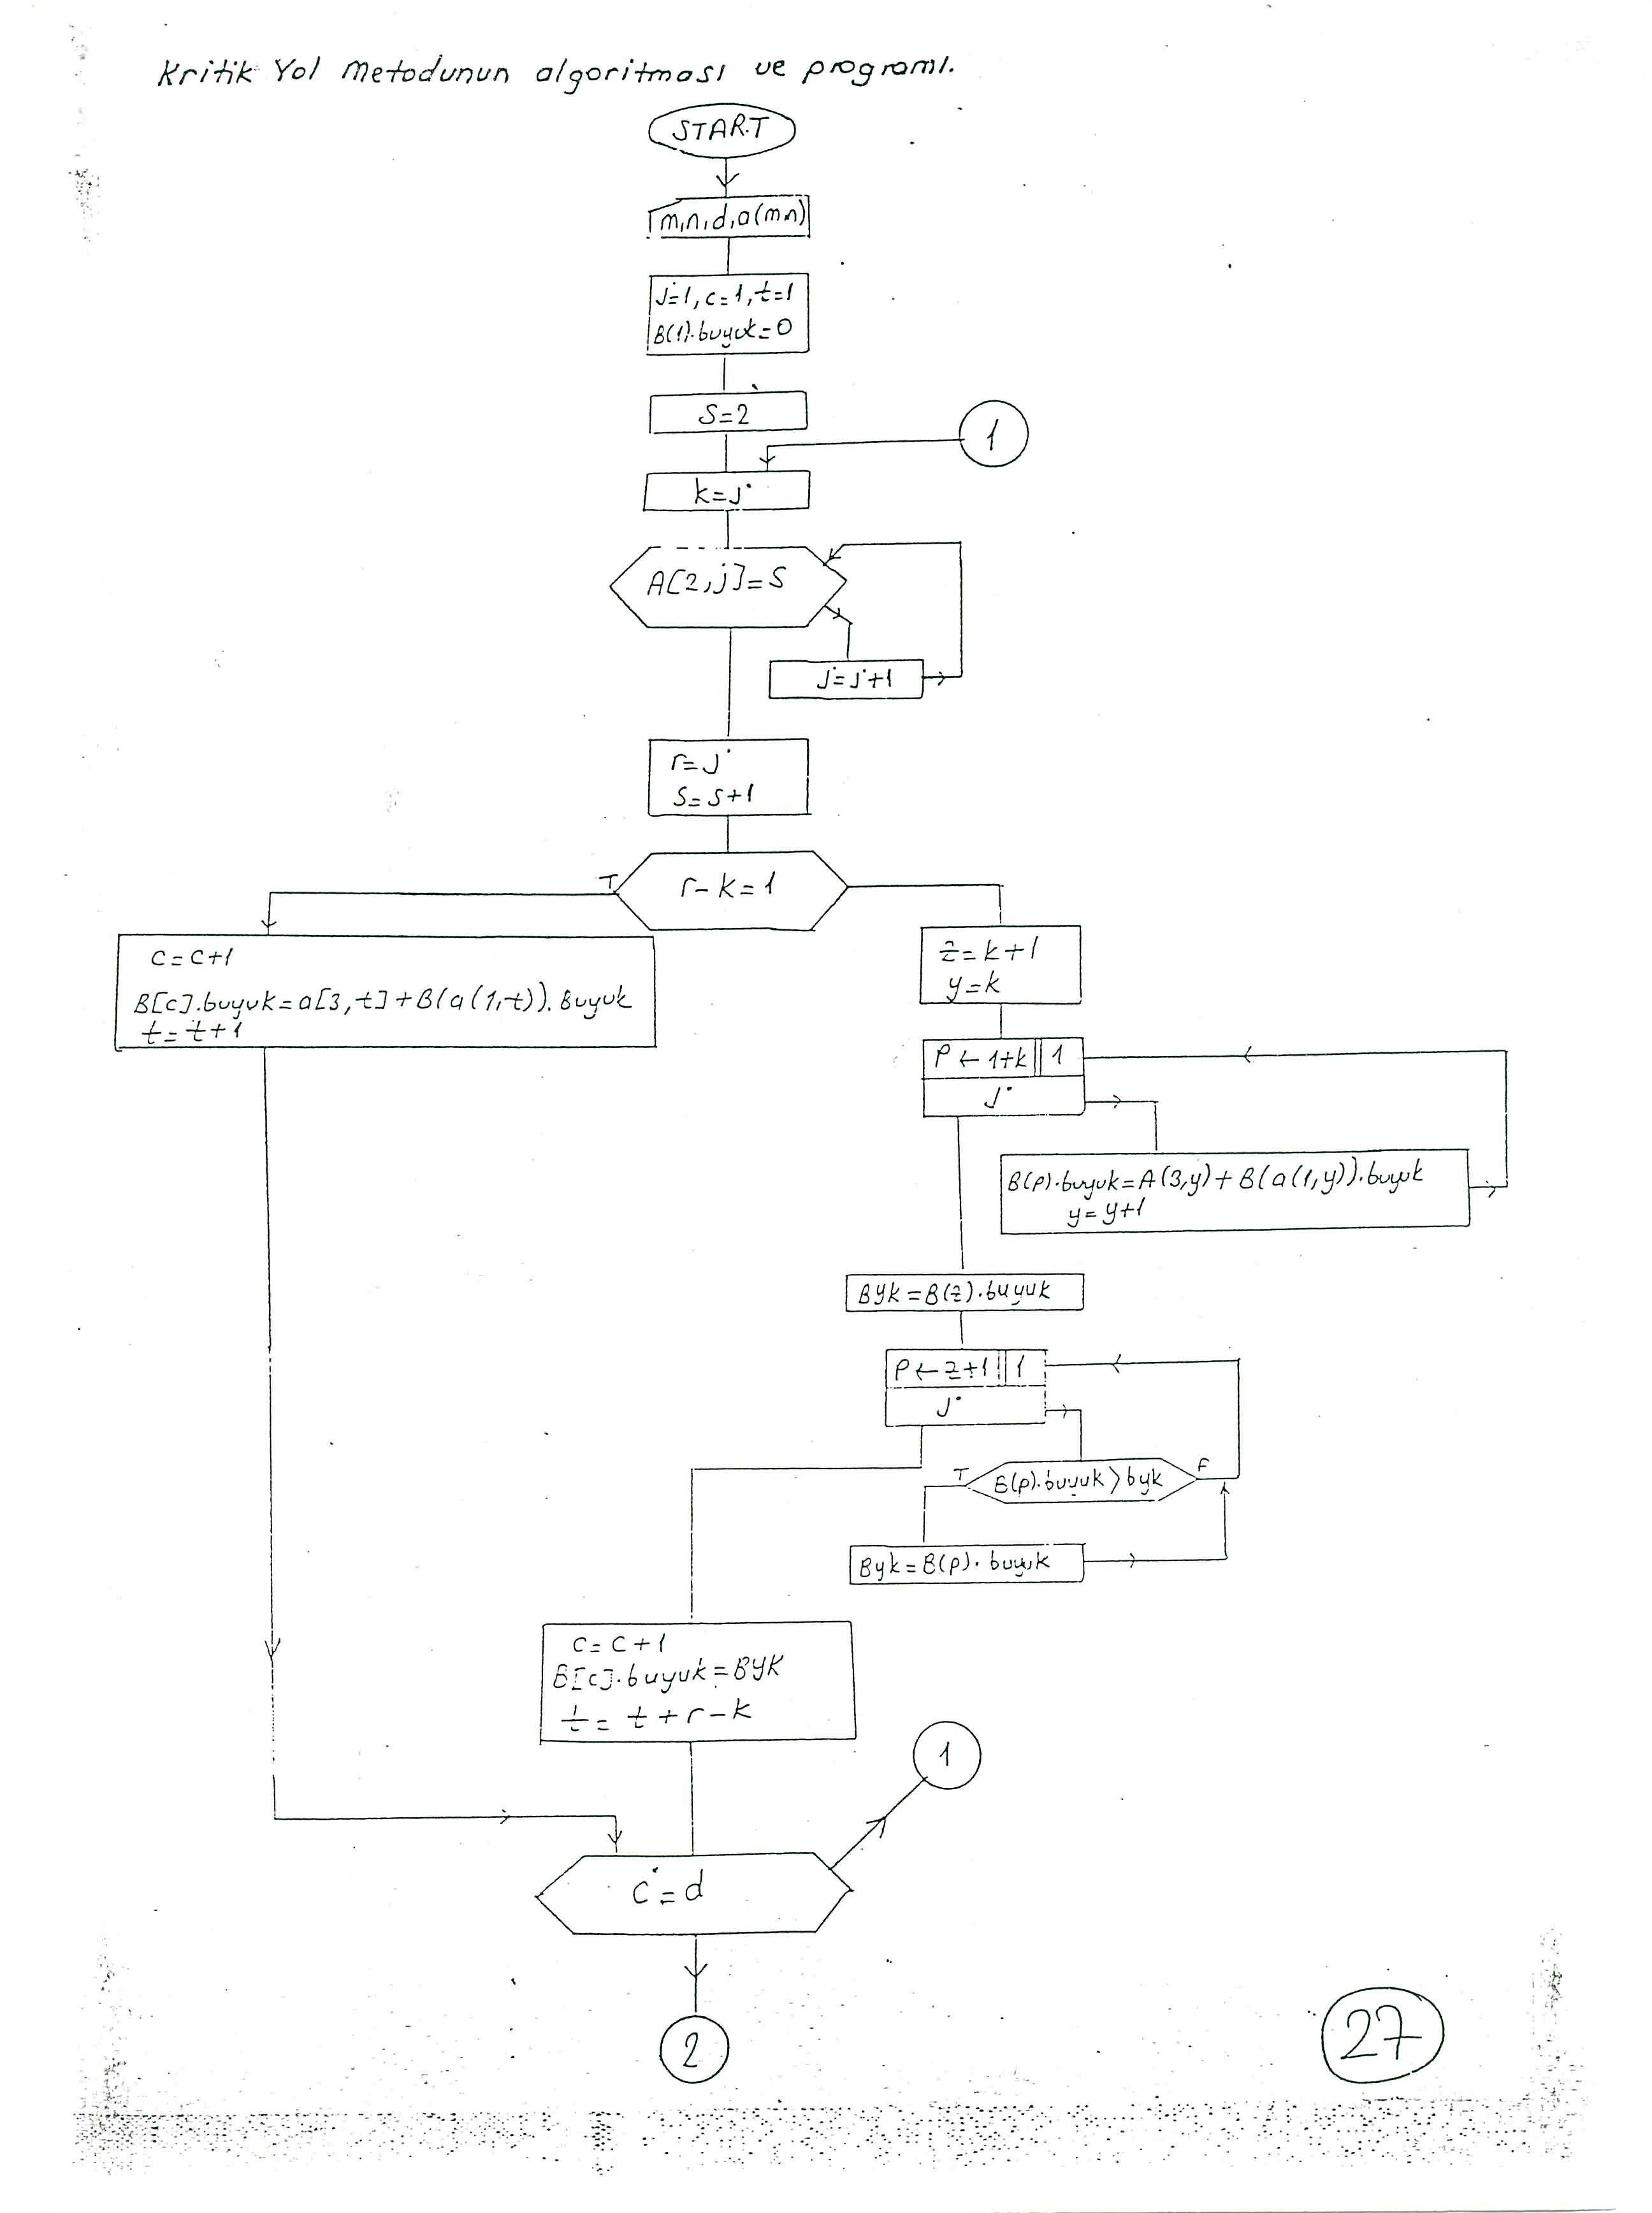 Kritik Yol Metodunun algoritması ve programı.
START
m,n,d,a(m,n)
j=1, c=1, t=1
B(1).buyuk=0
S=2
1
k=j
A[2,j]=S
j=j+1
r=j
S=S+1
T
r-k=1
c=c+1
B[c].buyuk=a[3,t]+B(a(1,t)).Buyuk
t=t+1
z=k+1
y=k
P←1+k 1
j
B(p).buyuk=A(3,y)+B(a(1,y)).buyuk
y=y+1
BYK=B(z).buyuk
P←z+1 1
j
T
B(p).buyuk>byk
F
Byk=B(p).buyuk
c=c+1
B[c].buyuk=BYK
t=t+r-k
1
c=d
2
27